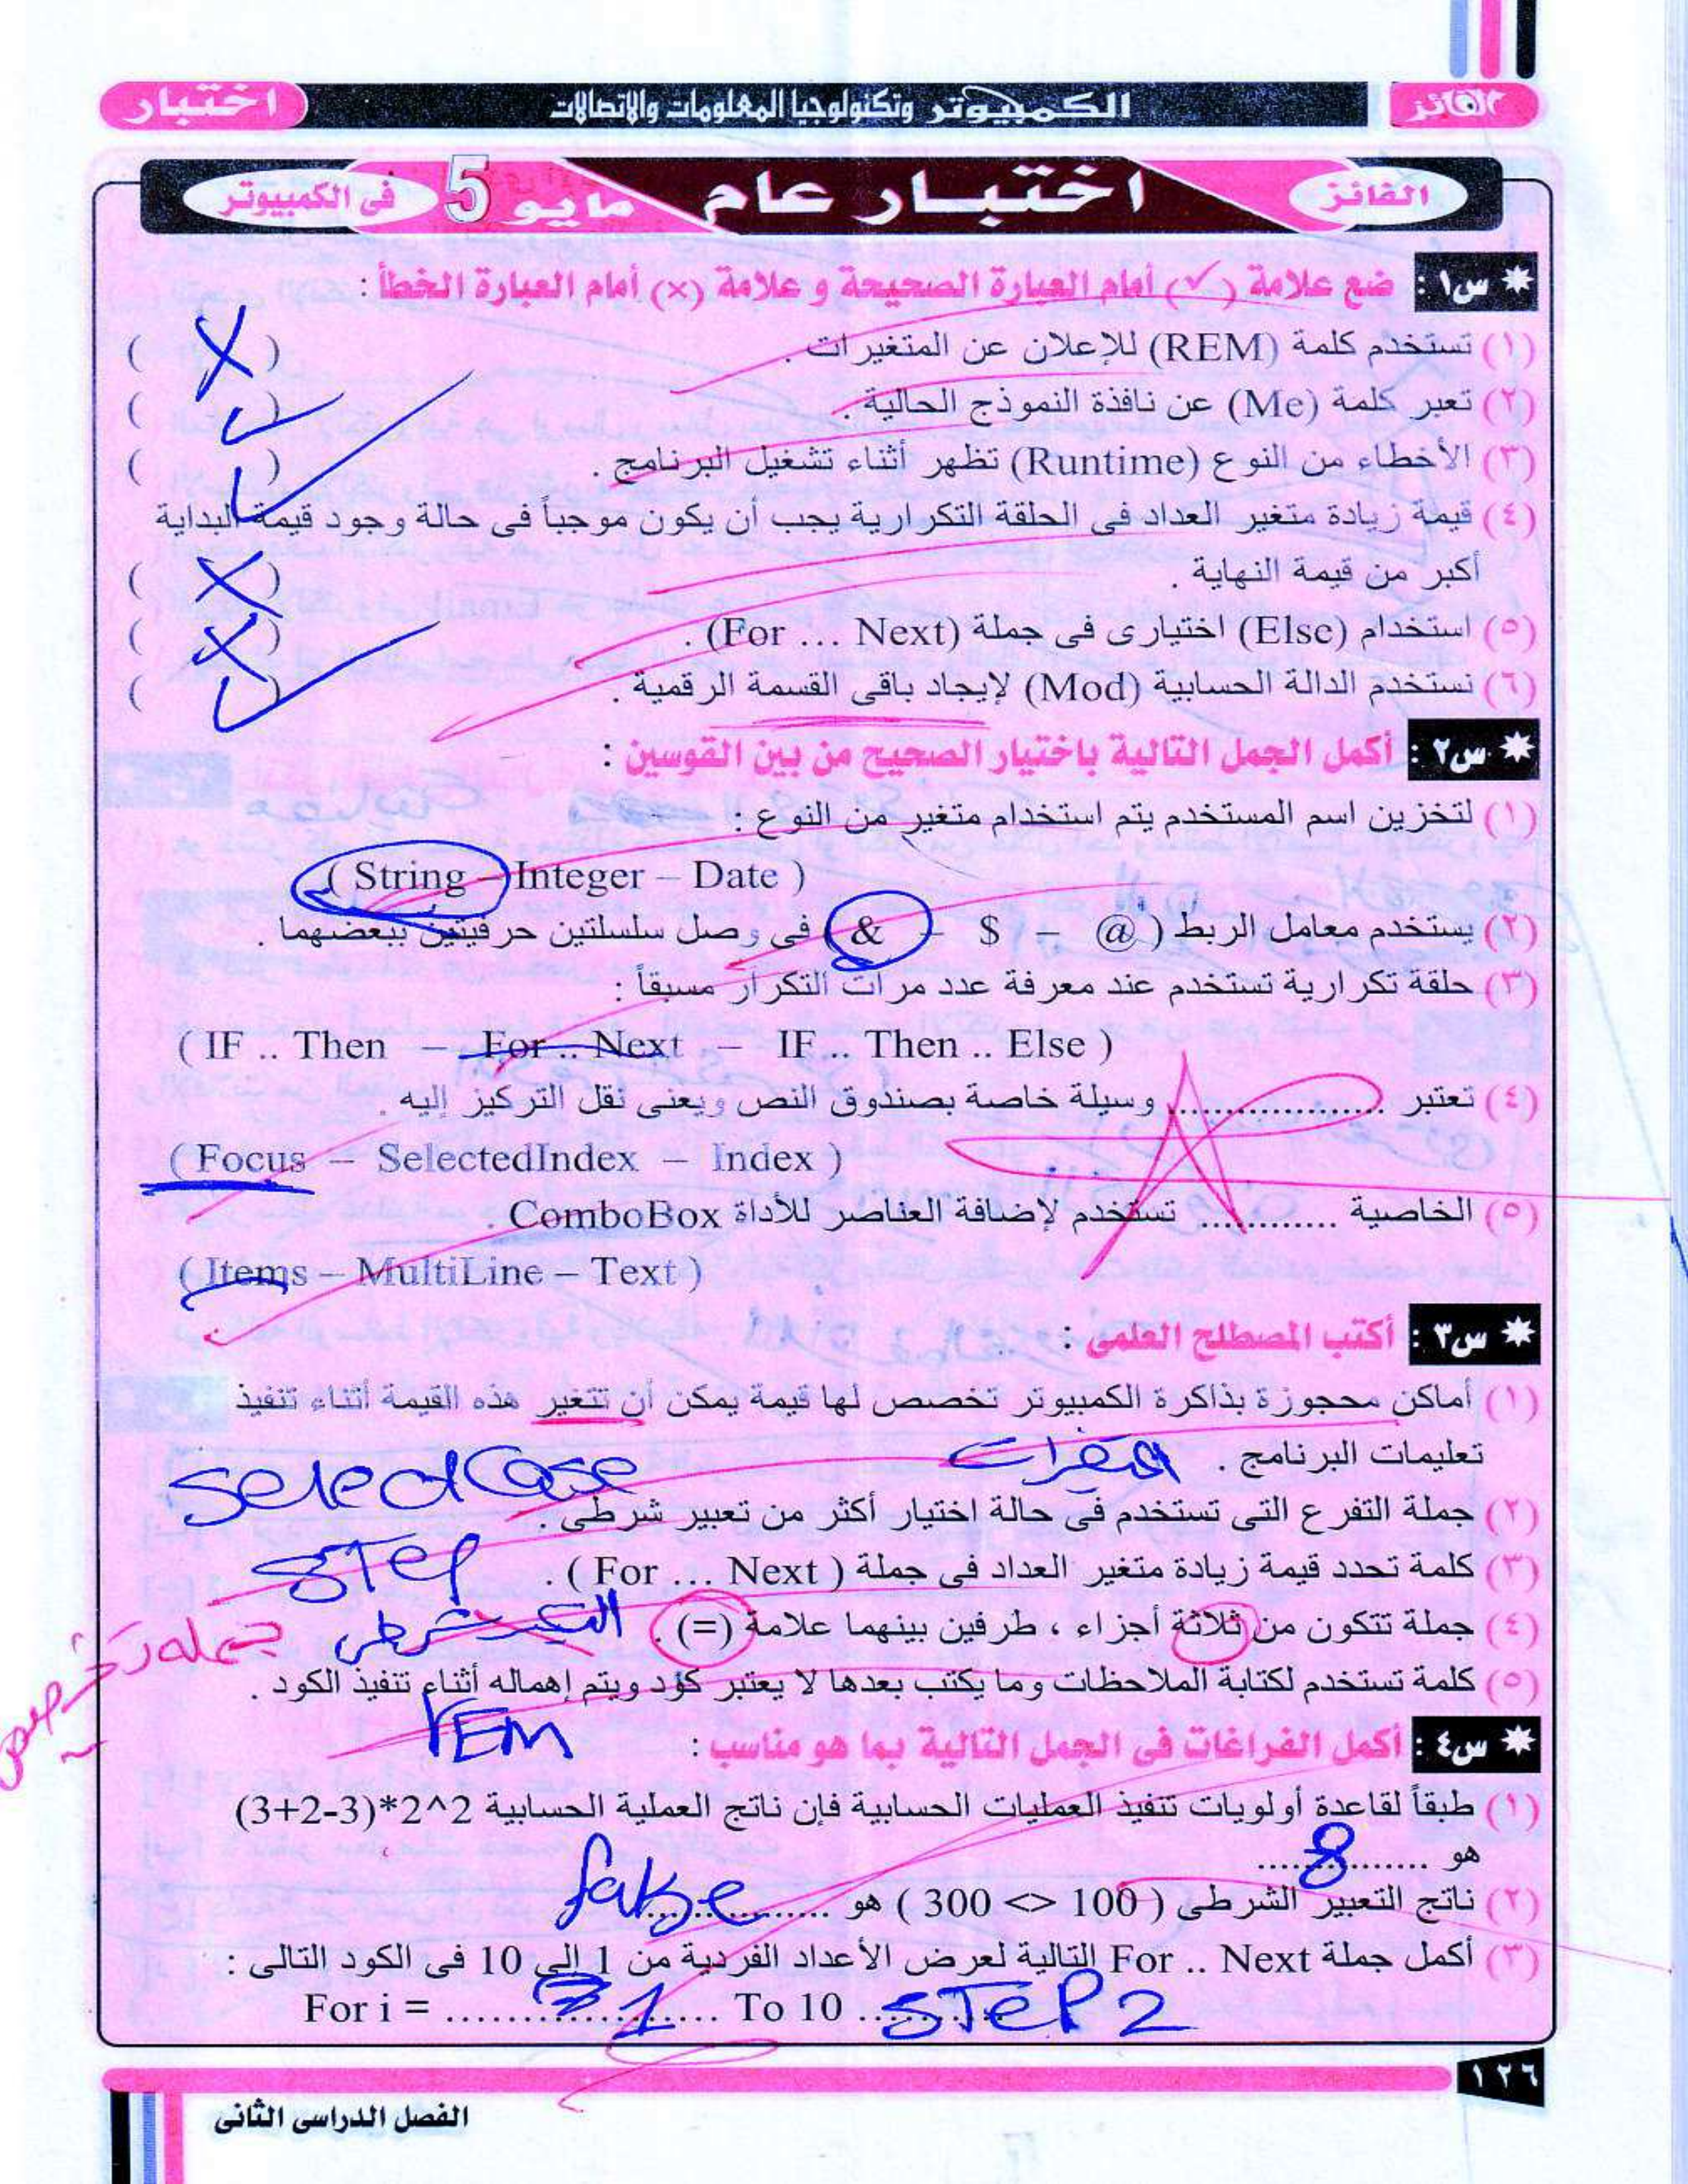 الفائز
الكمبيوتر وتكنولوجيا المعلومات والاتصالات
اختبار
الفائز
اختبار عام
مايو 5
فى الكمبيوتر
* س١ : ضع علامة (✓) أمام العبارة الصحيحة و علامة (×) أمام العبارة الخطأ :
(١) تستخدم كلمة (REM) للإعلان عن المتغيرات . ( X )
(٢) تعبر كلمة (Me) عن نافذة النموذج الحالية . ( ✓ )
(٣) الأخطاء من النوع (Runtime) تظهر أثناء تشغيل البرنامج . ( ✓ )
(٤) قيمة زيادة متغير العداد فى الحلقة التكرارية يجب أن يكون موجباً فى حالة وجود قيمة البداية
أكبر من قيمة النهاية . ( X )
(٥) استخدام (Else) اختيارى فى جملة (For ... Next) . ( X )
(٦) نستخدم الدالة الحسابية (Mod) لإيجاد باقى القسمة الرقمية . ( ✓ )
* س٢ : أكمل الجمل التالية باختيار الصحيح من بين القوسين :
(١) لتخزين اسم المستخدم يتم استخدام متغير من النوع :
( String – Integer – Date )
(٢) يستخدم معامل الربط ( @ – $ – & ) فى وصل سلسلتين حرفيتين ببعضهما .
(٣) حلقة تكرارية تستخدم عند معرفة عدد مرات التكرار مسبقاً :
( IF .. Then – For .. Next – IF .. Then .. Else )
(٤) تعتبر .................... وسيلة خاصة بصندوق النص ويعنى نقل التركيز إليه .
( Focus – SelectedIndex – Index )
(٥) الخاصية ............ تستخدم لإضافة العناصر للأداة ComboBox .
( Items – MultiLine – Text )
* س٣ : أكتب المصطلح العلمى :
(١) أماكن محجوزة بذاكرة الكمبيوتر تخصص لها قيمة يمكن أن تتغير هذه القيمة أثناء تنفيذ
تعليمات البرنامج . المتغيرات
selectCase
(٢) جملة التفرع التى تستخدم فى حالة اختيار أكثر من تعبير شرطى .
(٣) كلمة تحدد قيمة زيادة متغير العداد فى جملة ( For ... Next ) . STeP
(٤) جملة تتكون من ثلاثة أجزاء ، طرفين بينهما علامة (=) . التعبير الشرطى
جملة تخصيص
(٥) كلمة تستخدم لكتابة الملاحظات وما يكتب بعدها لا يعتبر كود ويتم إهماله أثناء تنفيذ الكود .
rEM
* س٤ : أكمل الفراغات فى الجمل التالية بما هو مناسب :
(١) طبقاً لقاعدة أولويات تنفيذ العمليات الحسابية فإن ناتج العملية الحسابية 2^2*(3-2+3)
هو ........ 8 ........
(٢) ناتج التعبير الشرطى ( 100 <> 300 ) هو ................ false
(٣) أكمل جملة For .. Next التالية لعرض الأعداد الفردية من 1 إلى 10 فى الكود التالى :
For i = ........ 1 ........ To 10 ........ STeP 2
١٢٦
الفصل الدراسى الثانى